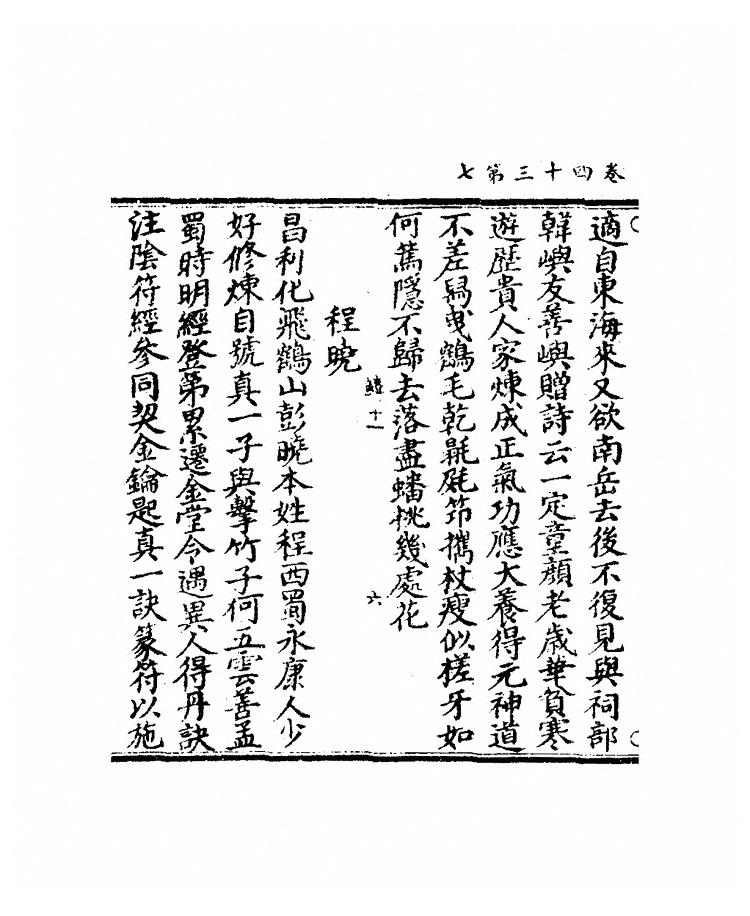 卷四十三第七
適自東海來又欲南岳去後不復見與祠部
韓嶼友善嶼贈詩云一定童顏老歲華負寒
遊歷貴人家煉成正氣功應大養得元神道
不差舄曳鶴毛乾毾㲪筇攜杖瘦似槎牙如
何篤隱不歸去落盡蟠桃幾處花
十一 六
程曉
昌利化飛鶴山彭曉本姓程西蜀永康人少
好修煉自號真一子與擊竹子何五雲善孟
蜀時明經登第累遷金堂令遇異人得丹訣
注陰符經參同契金鑰匙真一訣篆符以施